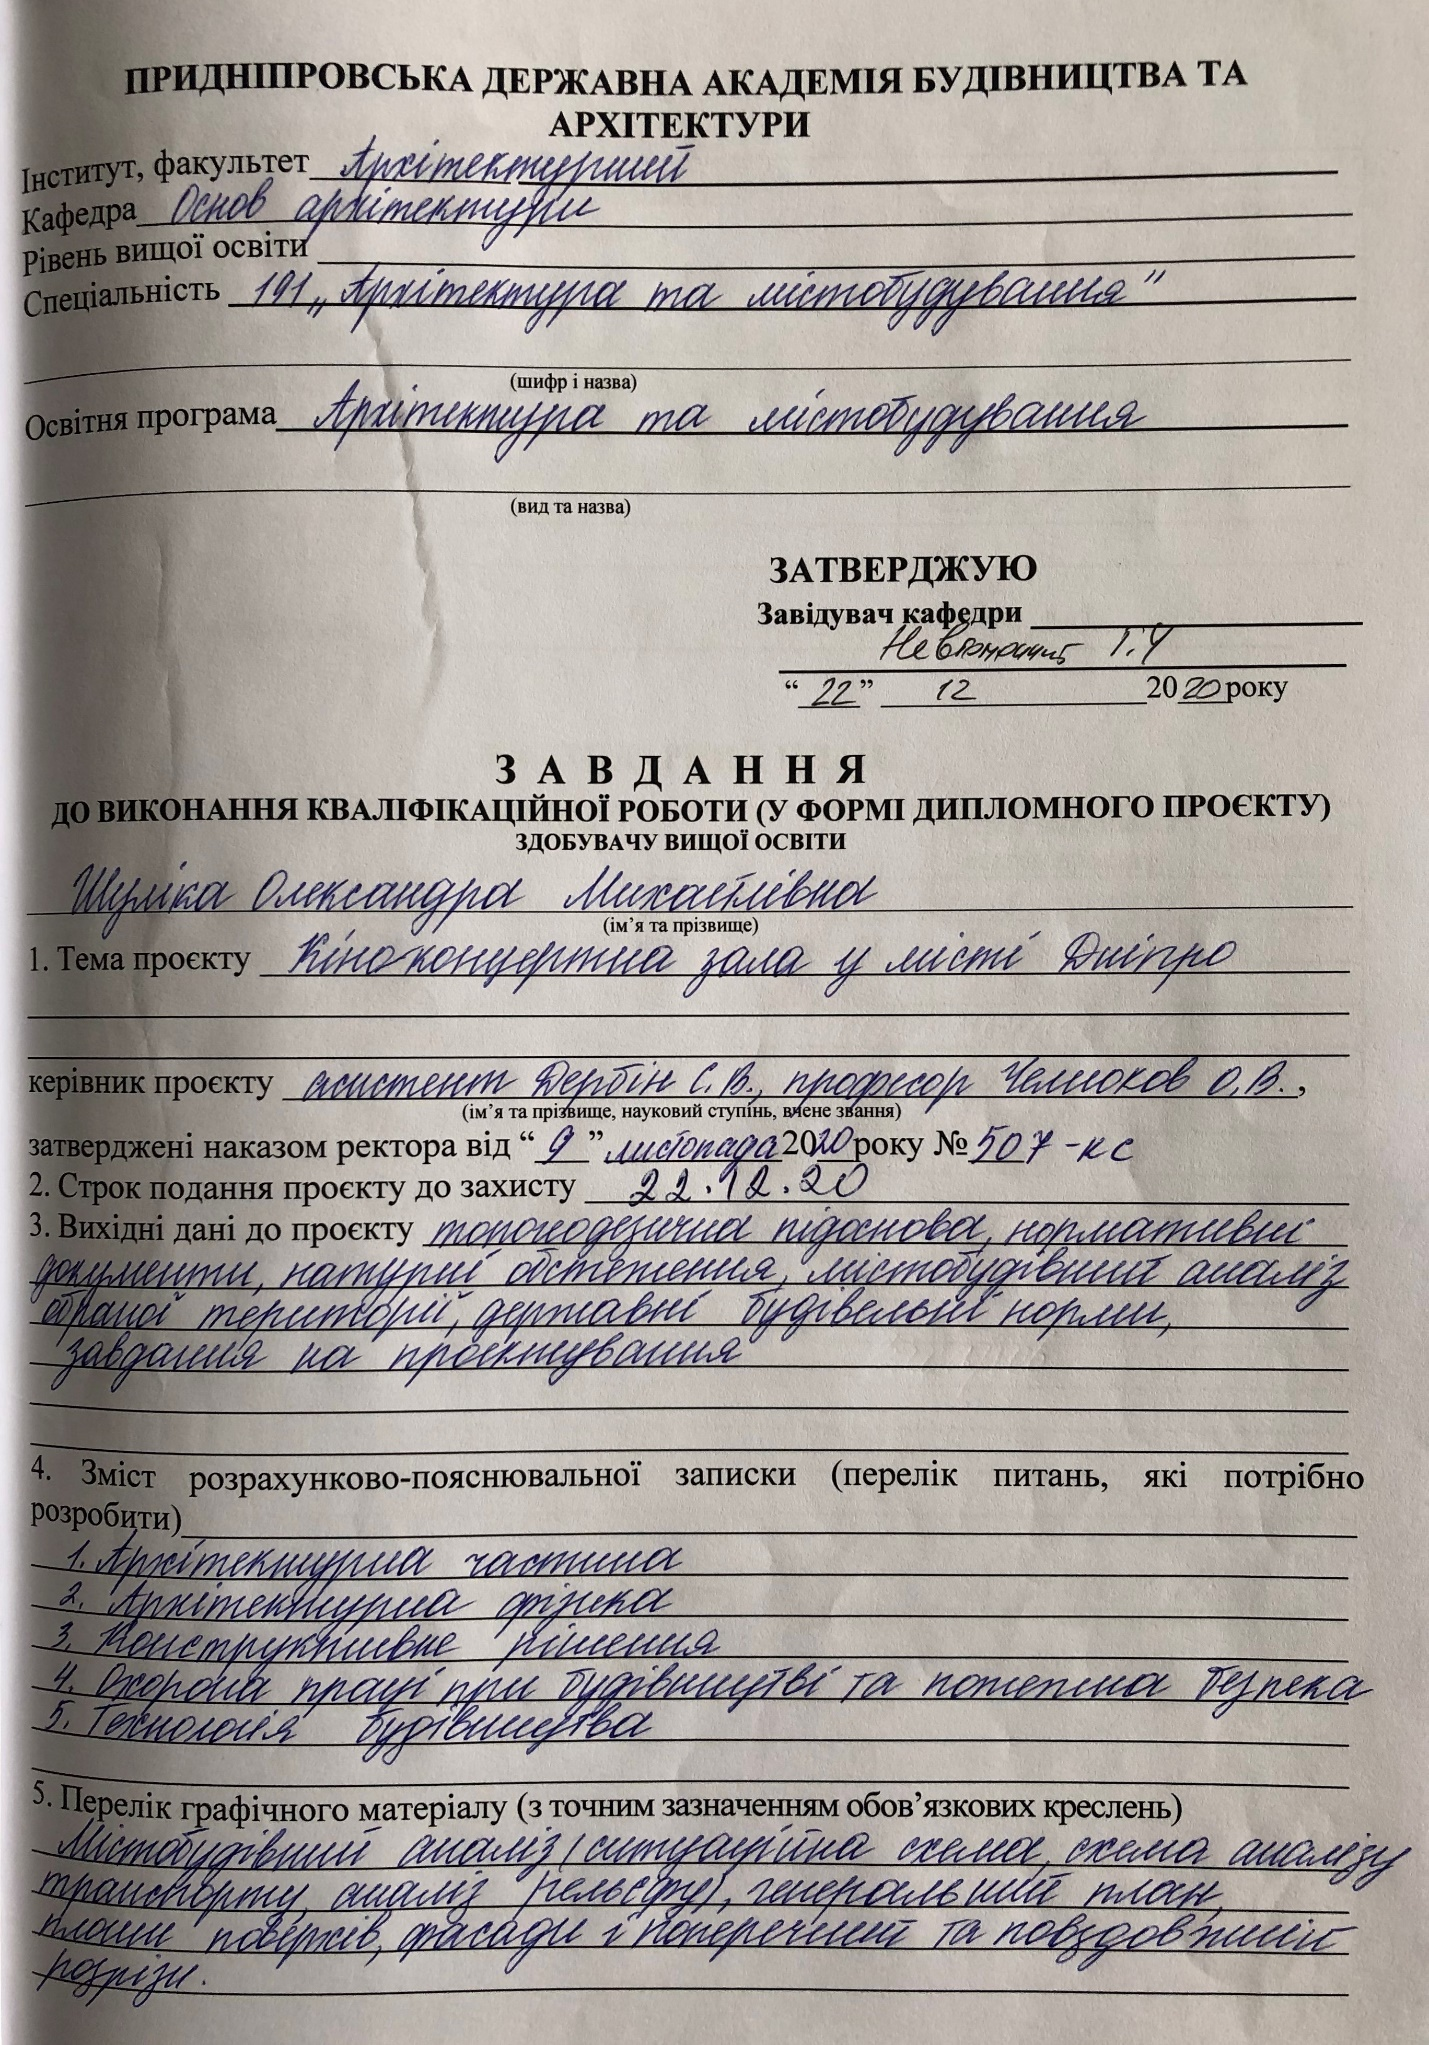 ПРИДНІПРОВСЬКА ДЕРЖАВНА АКАДЕМІЯ БУДІВНИЦТВА ТА
АРХІТЕКТУРИ
Інститут, факультет Архітектурний
Кафедра Основ архітектури
Рівень вищої освіти
Спеціальність 191 „Архітектура та містобудування"
(шифр і назва)
Освітня програма Архітектура та містобудування
(вид та назва)
ЗАТВЕРДЖУЮ
Завідувач кафедри
“ 22 ” 12 2020 року
З А В Д А Н Н Я
ДО ВИКОНАННЯ КВАЛІФІКАЦІЙНОЇ РОБОТИ (У ФОРМІ ДИПЛОМНОГО ПРОЄКТУ)
ЗДОБУВАЧУ ВИЩОЇ ОСВІТИ
Шуліка Олександра Михайлівна
(ім’я та прізвище)
1. Тема проєкту Кіноконцертна зала у місті Дніпро
керівник проєкту асистент Дербін С.В., професор Челноков О.В.,
(ім’я та прізвище, науковий ступінь, вчене звання)
затверджені наказом ректора від “ 9 ” листопада 2020 року № 507-кс
2. Строк подання проєкту до захисту 22.12.20
3. Вихідні дані до проєкту топогодезична підоснова, нормативні
документи, натурні обстеження, містобудівний аналіз
обраної території, державні будівельні норми,
завдання на проєктування
4. Зміст розрахунково-пояснювальної записки (перелік питань, які потрібно
розробити)
1. Архітектурна частина
2. Архітектурна фізика
3. Конструктивне рішення
4. Охорона праці при будівництві та пожежна безпека
5. Технологія будівництва
5. Перелік графічного матеріалу (з точним зазначенням обов’язкових креслень)
Містобудівний аналіз (ситуаційна схема, схема аналізу
транспорту, аналіз рельєфу), генеральний план,
плани поверхів, фасади і поперечний та повздовжній
розрізи.